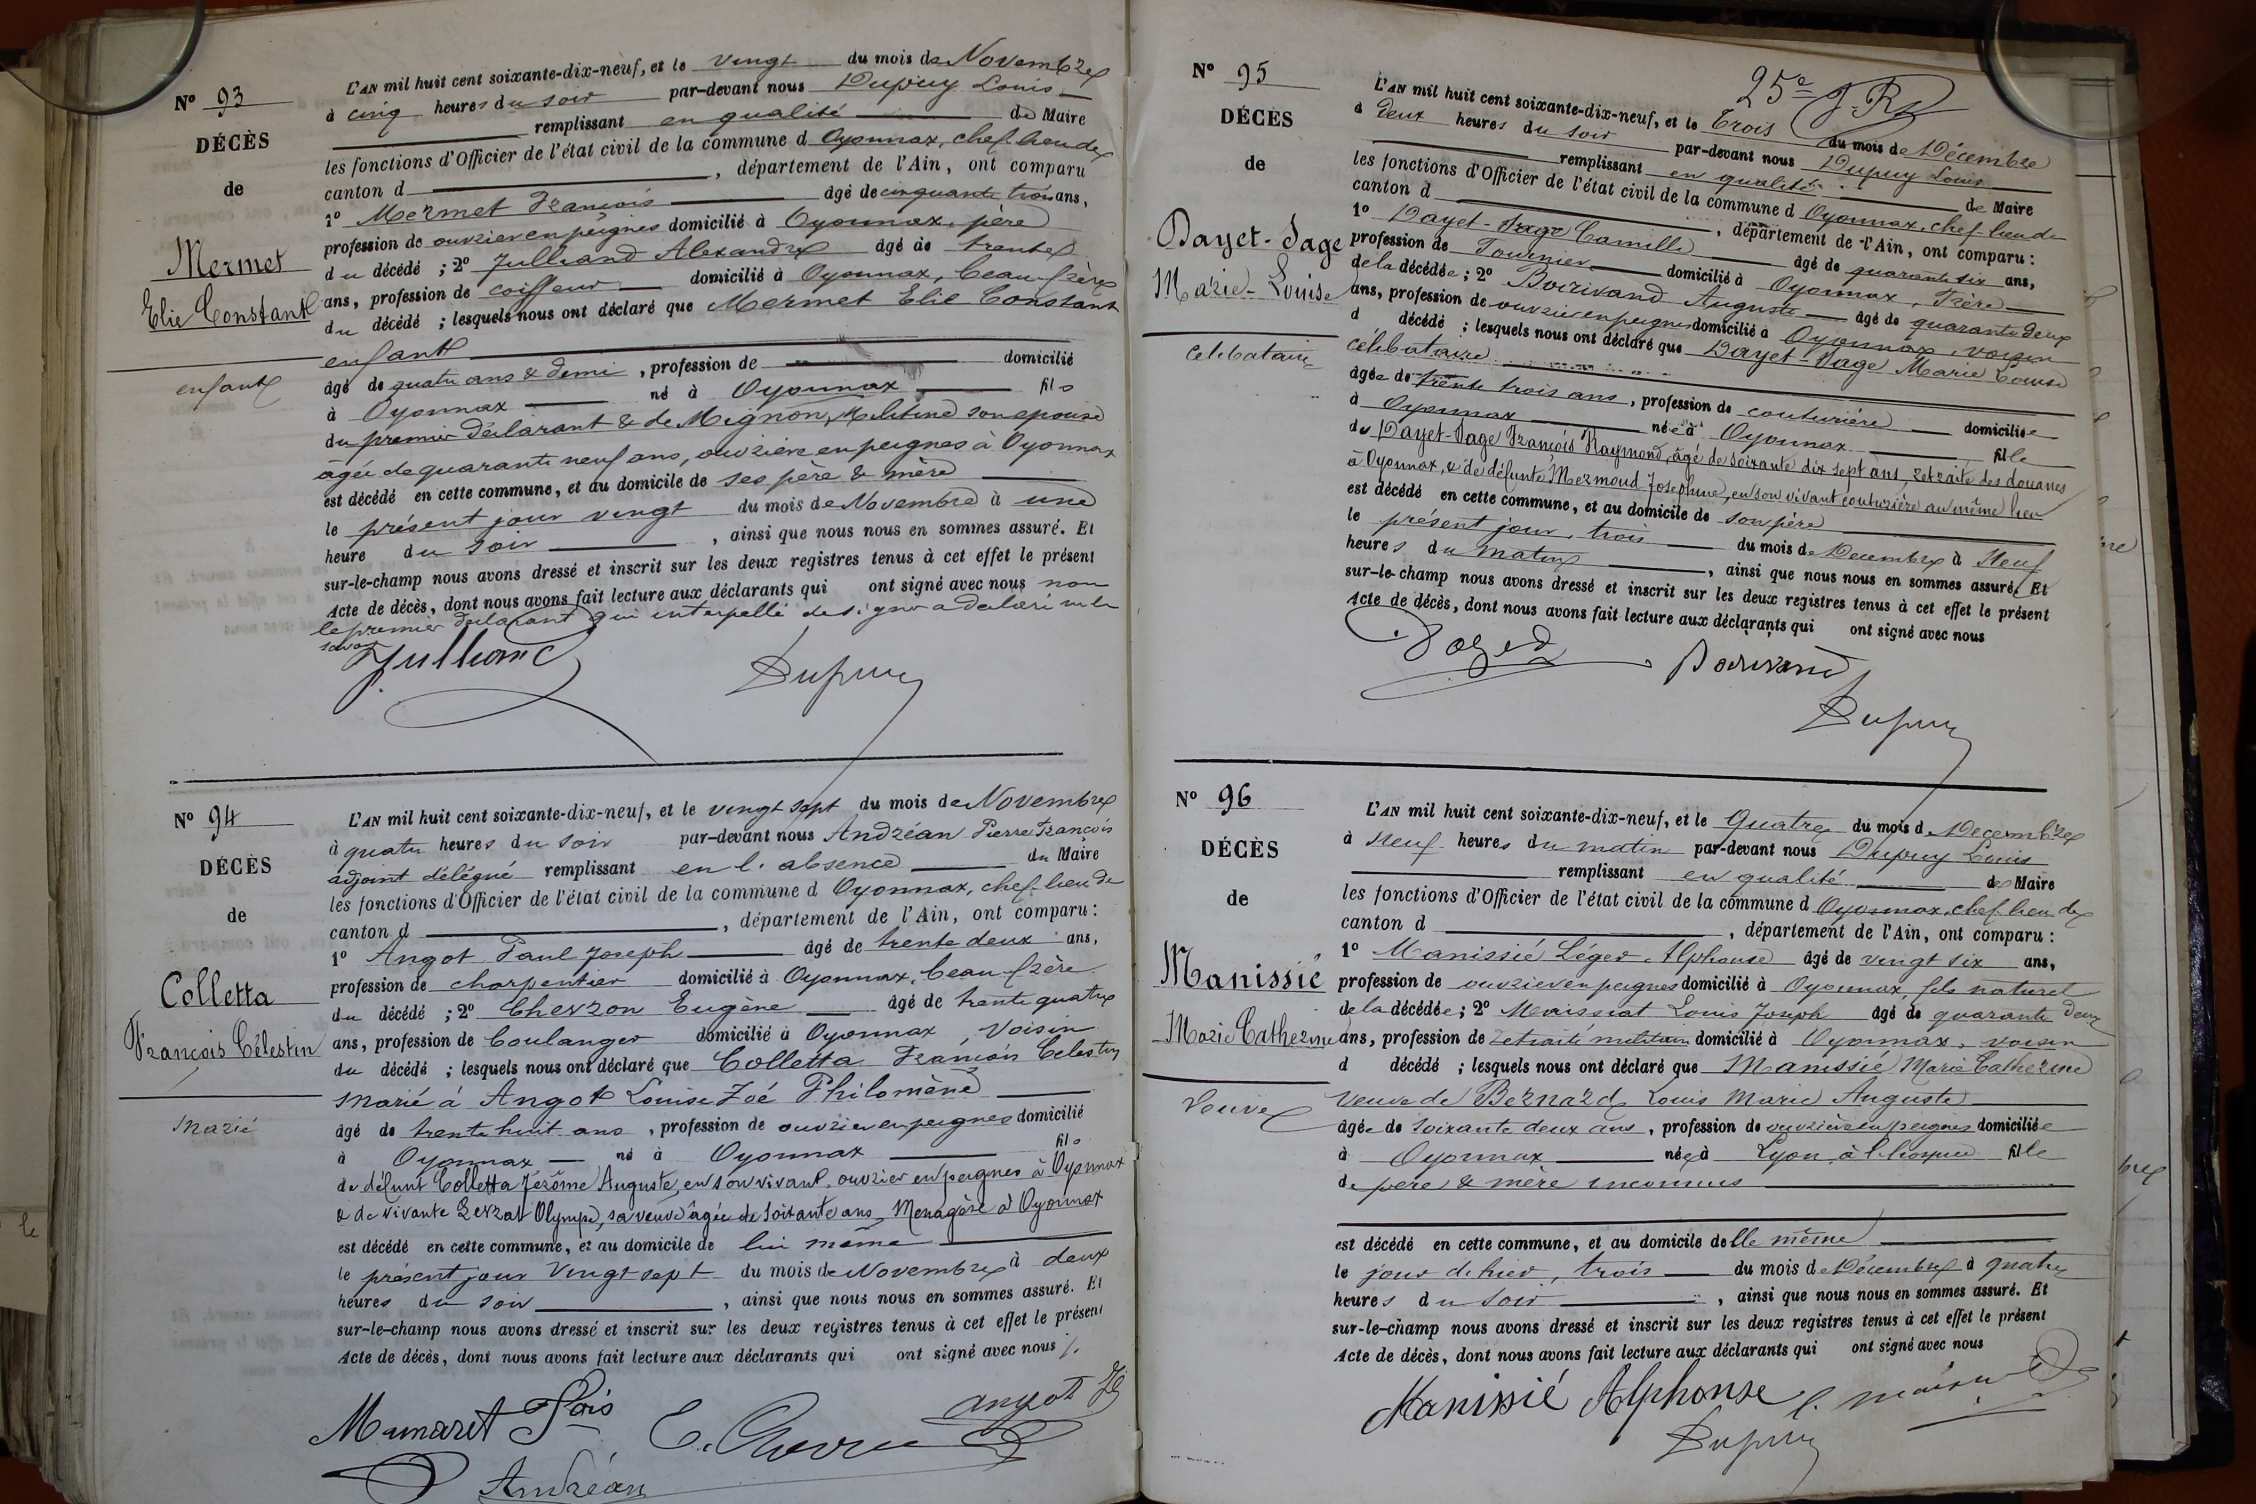 N° 93
DÉCÈS
de
Mermet
Elie Constant
enfant
L'AN mil huit cent soixante-dix-neuf, et le vingt du mois de Novembre
à cinq heures du soir par-devant nous Dupuy Louis
remplissant en qualité de Maire
les fonctions d'Officier de l'état civil de la commune d Oyonnax, chef lieu de
canton d , département de l'Ain, ont comparu
1° Mermet François âgé de cinquante trois ans,
profession de ouvrier en peignes domicilié à Oyonnax, père
du décédé ; 2° Julliand Alexandre âgé de trente
ans, profession de coiffeur domicilié à Oyonnax, beau frère
du décédé ; lesquels nous ont déclaré que Mermet Elie Constant
enfant
âgé de quatre ans & demi , profession de domicilié
à Oyonnax né à Oyonnax fils
du premier déclarant & de Mignon, Melitine son épouse
âgée de quarante neuf ans, ouvrière en peignes à Oyonnax
est décédé en cette commune, et au domicile de ses père & mère
le présent jour vingt du mois de Novembre à une
heure du soir , ainsi que nous nous en sommes assuré. Et
sur-le-champ nous avons dressé et inscrit sur les deux registres tenus à cet effet le présent
Acte de décès, dont nous avons fait lecture aux déclarants qui ont signé avec nous non
le premier déclarant qui interpellé de signer a déclaré ne le
savoir
Julliand
Dupuy
N° 94
DÉCÈS
de
Colletta
François Célestin
Marié
L'AN mil huit cent soixante-dix-neuf, et le vingt sept du mois de Novembre
à quatre heures du soir par-devant nous Andréan Pierre François
adjoint délégué remplissant en l'absence du Maire
les fonctions d'Officier de l'état civil de la commune d Oyonnax, chef lieu de
canton d , département de l'Ain, ont comparu :
1° Angot Paul Joseph âgé de trente deux ans,
profession de charpentier domicilié à Oyonnax, beau frère
du décédé ; 2° Chevron Eugène âgé de trente quatre
ans, profession de boulanger domicilié à Oyonnax, Voisin
du décédé ; lesquels nous ont déclaré que Colletta François Celestin
marié à Angot Louise Zoé Philomène
âgé de trente huit ans , profession de ouvrier en peignes domicilié
à Oyonnax né à Oyonnax fils
de défunt Colletta Jérôme Auguste, en son vivant ouvrier en peignes à Oyonnax
& de vivante Olympe, sa veuve âgée de soixante ans Menagère à Oyonnax
est décédé en cette commune, et au domicile de lui même
le présent jour Vingt sept du mois de Novembre à deux
heures du soir , ainsi que nous nous en sommes assuré. Et
sur-le-champ nous avons dressé et inscrit sur les deux registres tenus à cet effet le présent
Acte de décès, dont nous avons fait lecture aux déclarants qui ont signé avec nous /.
Munaret Fçois angot
Andréan
N° 95
DÉCÈS
de
Dayet-Page
Marie-Louise
celibataire
25e
L'AN mil huit cent soixante-dix-neuf, et le Trois du mois de Décembre
à deux heures du soir par-devant nous Dupuy Louis
remplissant en qualité de Maire
les fonctions d'Officier de l'état civil de la commune d Oyonnax, chef lieu de
canton d , département de l'Ain, ont comparu :
1° Dayet-Page Camille âgé de quarante six ans,
profession de Tourneur domicilié à Oyonnax, Frère
de la décédée ; 2° Boirivand Auguste âgé de quarante deux
ans, profession de ouvrier en peignes domicilié à Oyonnax, voisin
d décédé ; lesquels nous ont déclaré que Dayet-Page Marie Louise
célibataire
âgée de trente trois ans , profession de couturière domiciliée
à Oyonnax née à Oyonnax fille
de Dayet-Page François Raymond, âgé de soixante dix sept ans, retraité des douanes
à Oyonnax, & de défunte Mermoud Josephine, en son vivant couturière au même lieu
est décédé en cette commune, et au domicile de son père
le présent jour, trois du mois de Decembre à Neuf
heures du matin , ainsi que nous nous en sommes assuré. Et
sur-le-champ nous avons dressé et inscrit sur les deux registres tenus à cet effet le présent
Acte de décès, dont nous avons fait lecture aux déclarants qui ont signé avec nous
Boirivand
Dupuy
N° 96
DÉCÈS
de
Manissié
Marie Catherine
Veuve
L'AN mil huit cent soixante-dix-neuf, et le Quatre du mois de Decembre
à neuf heures du matin par-devant nous Dupuy Louis
remplissant en qualité de Maire
les fonctions d'Officier de l'état civil de la commune d Oyonnax, chef lieu de
canton d , département de l'Ain, ont comparu :
1° Manissié Léger Alphonse âgé de vingt six ans,
profession de ouvrier en peignes domicilié à Oyonnax, fils naturel
de la décédée ; 2° Maissiat Louis Joseph âgé de quarante deux
ans, profession de retraité militaire domicilié à Oyonnax, voisin
d décédé ; lesquels nous ont déclaré que Manissié Marie Catherine
Veuve de Bernard Louis Marie Auguste
âgée de soixante deux ans , profession de ouvrière en peignes domiciliée
à Oyonnax née à Lyon, à l'hospice fille
de père & mère inconnus
est décédé en cette commune, et au domicile delle même
le jour de hier, trois du mois de Décembre à quatre
heures du soir , ainsi que nous nous en sommes assuré. Et
sur-le-champ nous avons dressé et inscrit sur les deux registres tenus à cet effet le présent
Acte de décès, dont nous avons fait lecture aux déclarants qui ont signé avec nous
Manissié Alphonse
Dupuy